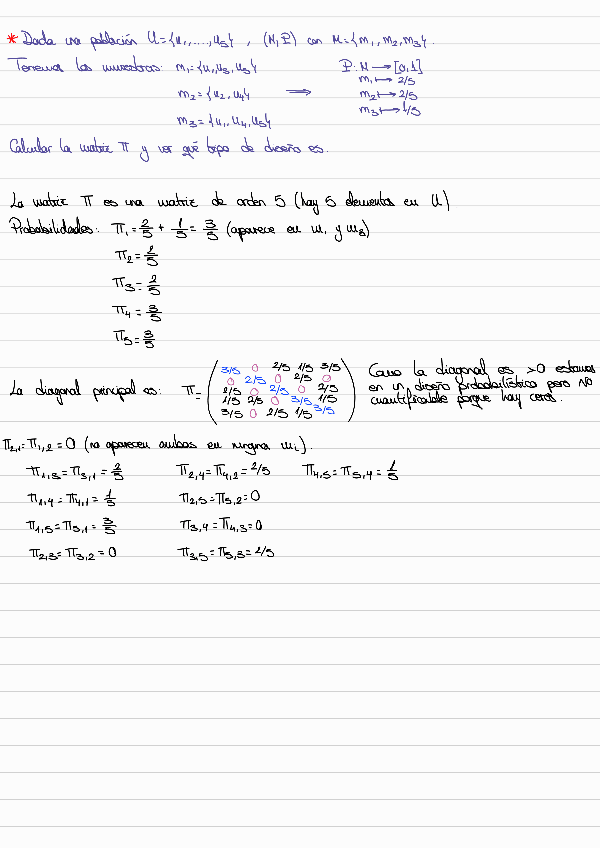 * Dada una población U={u₁,....,u₅}, (M,P) con M={m₁,m₂,m₃}.
Tenemos las muestras: m₁={u₁,u₃,u₅} P: M → [0,1]
m₁ ↦ 2/5
m₂={u₂,u₄} ⟹ m₂ ↦ 2/5
m₃ ↦ 1/5
m₃={u₁,u₄,u₅}
Calcular la matriz Π y ver qué tipo de diseño es.
La matriz Π es una matriz de orden 5 (hay 5 elementos en U)
Probabilidades: Π₁=2/5+1/5=3/5 (aparece en m₁ y m₃)
Π₂=2/5
Π₃=2/5
Π₄=3/5
Π₅=3/5
La diagonal principal es: Π=
3/5 0 2/5 1/5 3/5
0 2/5 0 2/5 0
2/5 0 2/5 0 2/5
1/5 2/5 0 3/5 1/5
3/5 0 2/5 1/5 3/5
Como la diagonal es >0 estamos
en un diseño probabilístico pero NO
cuantificable porque hay ceros.
Π₂,₁=Π₁,₂=0 (no aparecen ambas en ninguna mᵢ).
Π₁,₃=Π₃,₁=2/5 Π₂,₄=Π₄,₂=2/5 Π₄,₅=Π₅,₄=1/5
Π₁,₄=Π₄,₁=1/5 Π₂,₅=Π₅,₂=0
Π₁,₅=Π₅,₁=3/5 Π₃,₄=Π₄,₃=0
Π₂,₃=Π₃,₂=0 Π₃,₅=Π₅,₃=2/5